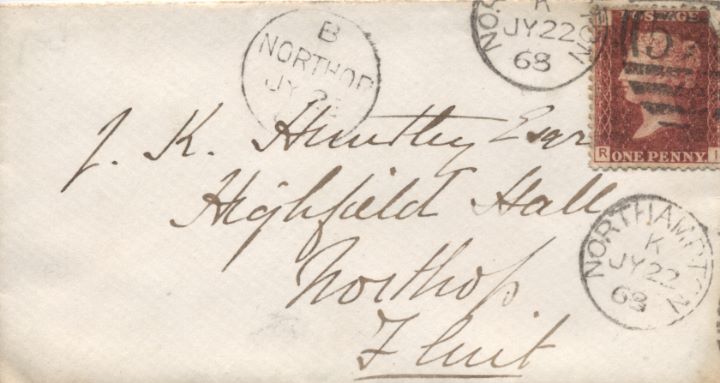 B
NORTHOP
JY 23
K
JY 22
68
POSTAGE
R I
ONE PENNY
J. K. Huntley Esqre
Highfield Hall
Northop
Flint
NORTHAMPTON
K
JY 22
68